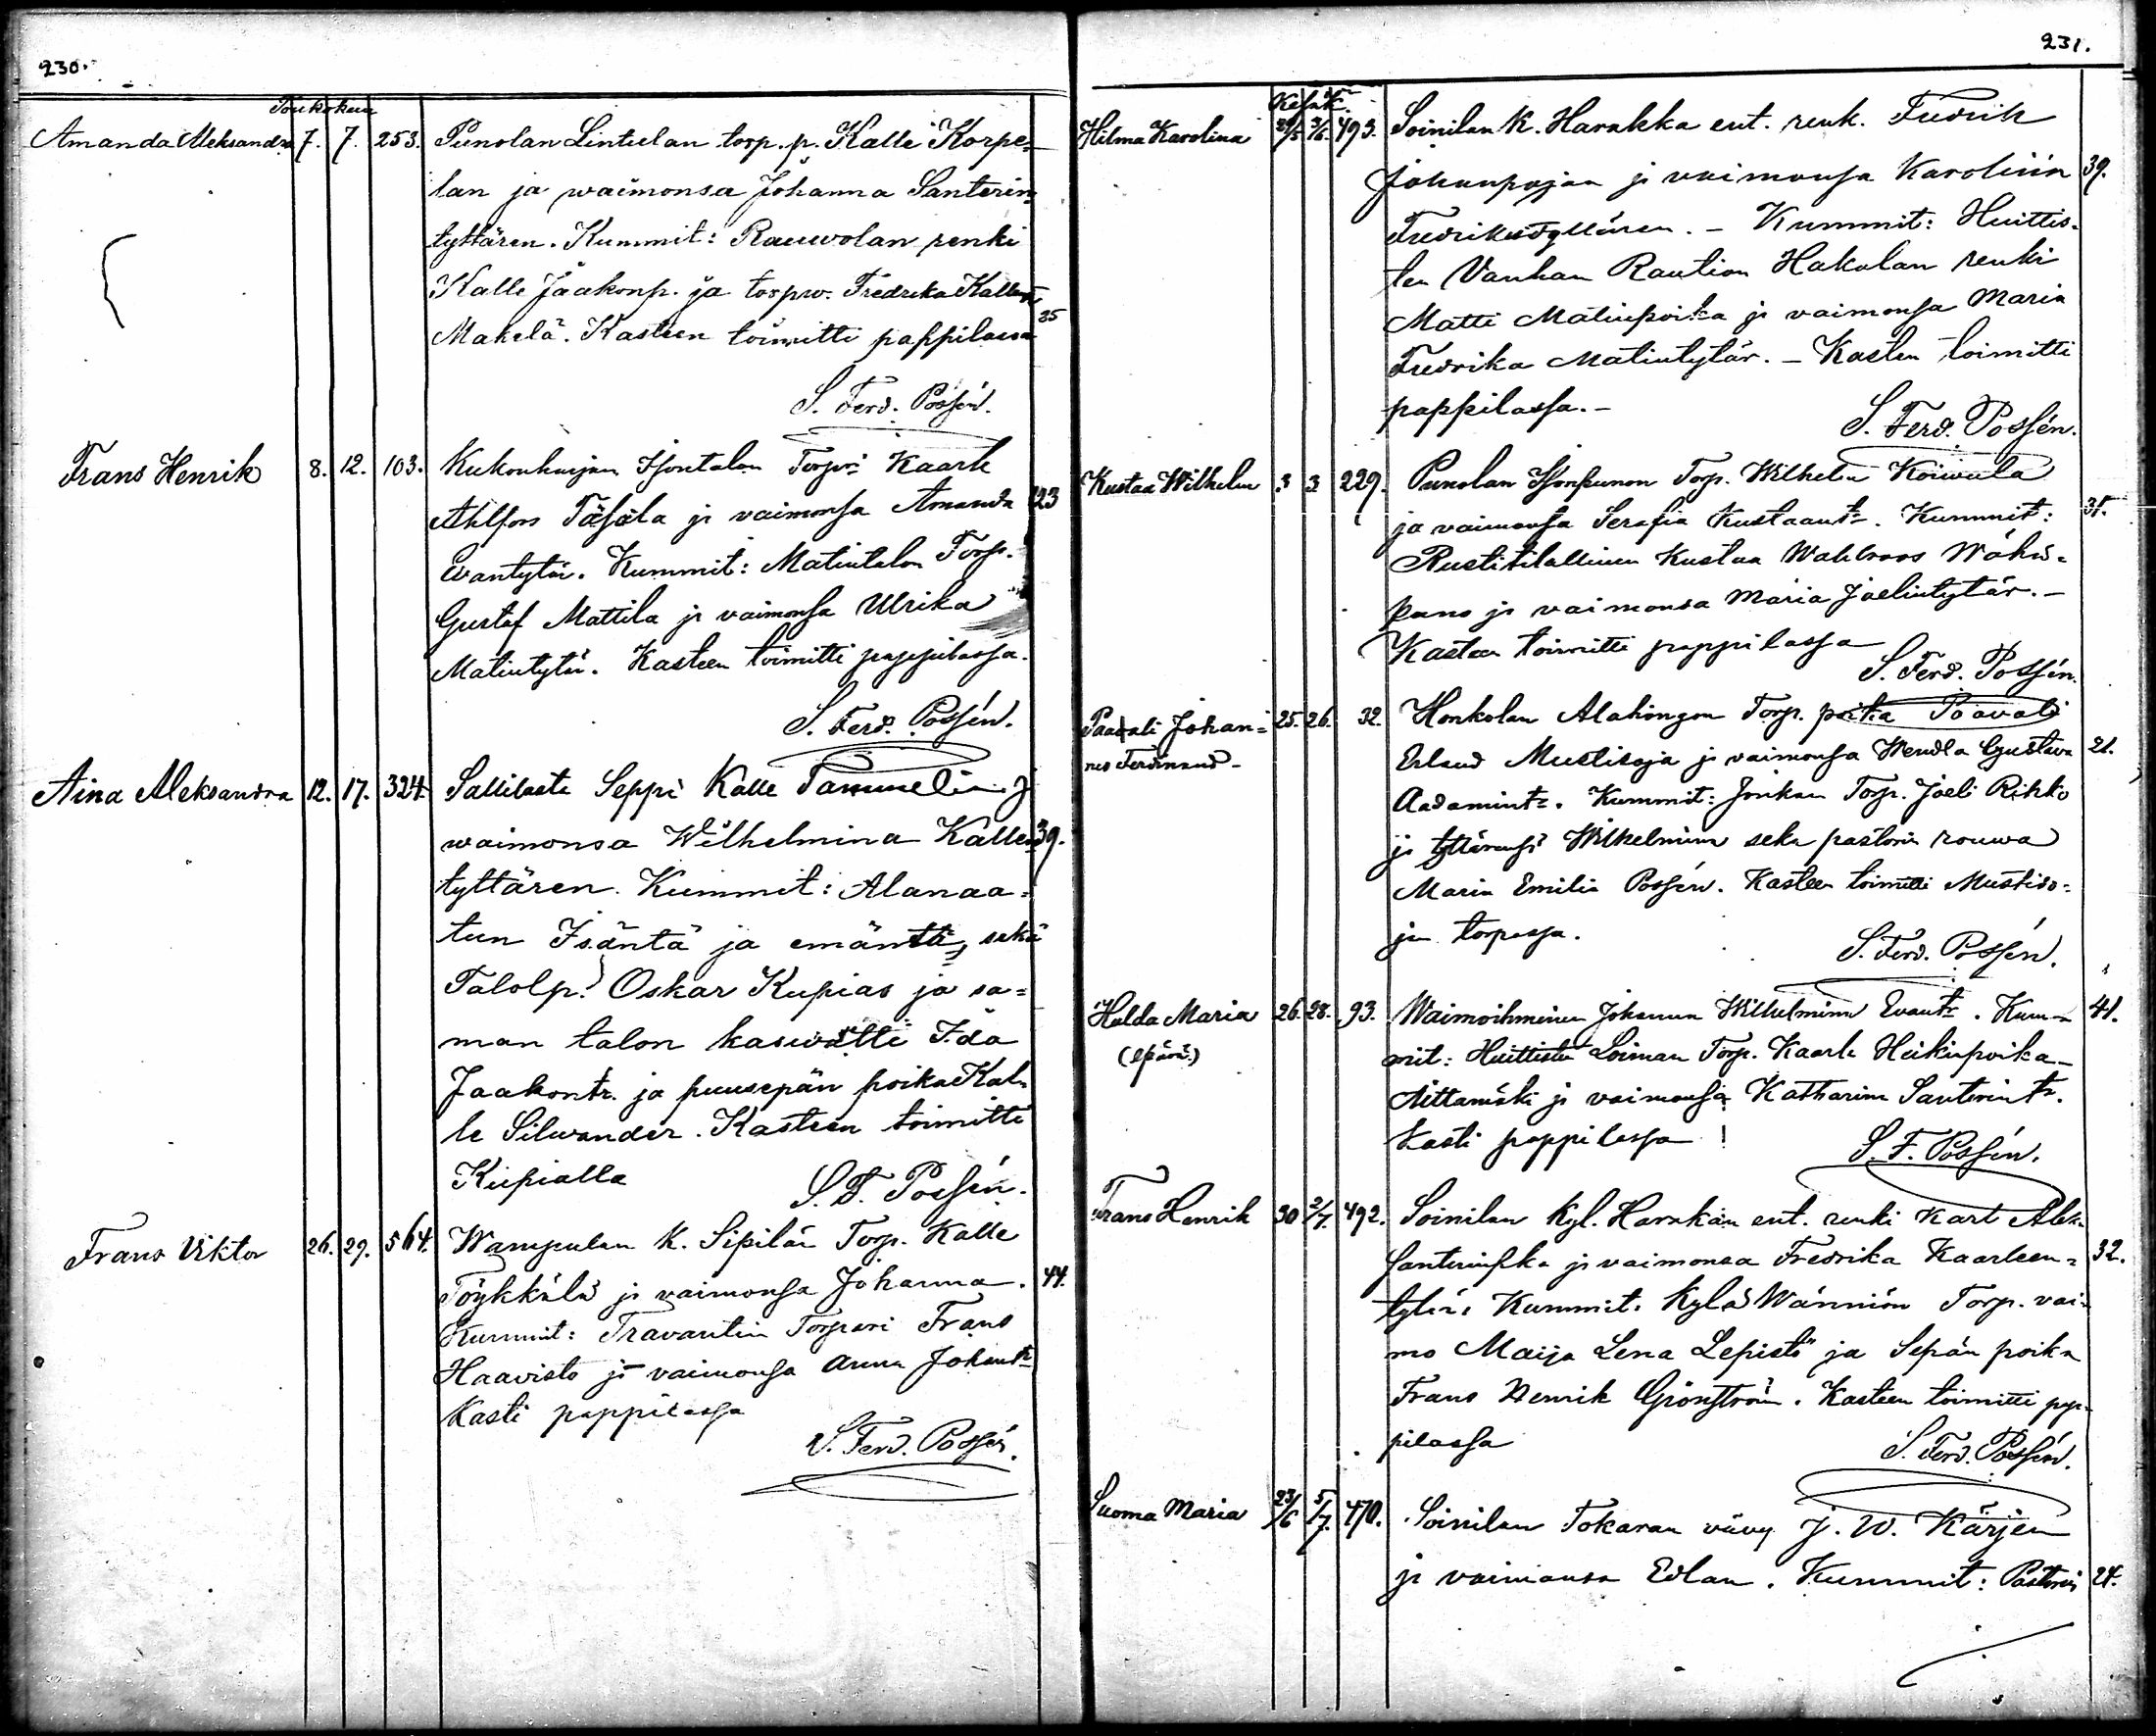 230.
Toukokuu
Amanda Aleksandra 7. 7. 253. Punolan Lintulan torp. p. Kalle Korpe=
lan ja waimonsa Johanna Santerin=
tyttären. Kummit: Rauwolan renki
Kalle Jaakonp. ja torpw. Fredrika Kallent.
Makelä. Kasteen toimitti pappilassa 25
S. Ferd. Possén.
Frans Henrik 8. 12. 103. Kukonharjan Isontalon Torpp. Kaarle
Ahlfors ja vaimonsa Amanda 23
Evantytär. Kummit: Matintalon Torp.
Gustaf Mattila ja vaimonsa Ulrika
Matintytär. Kasteen toimitti pappilassa.
S. Ferd. Possén.
Aina Aleksandra 12. 17. 324. Sallilasta Seppi Kalle Tammelin j
waimonsa Wilhelmina Kallen 39.
tyttären. Kummit: Alanaa=
tun Isäntä ja emäntä, sekä
Talolp. Oskar Kupias ja sa=
man talon kaswatti Ida
Jaakontr. ja puusepän poika Kal=
le Silwander. Kasteen toimitti
Kupialla S. F. Possén.
Frans Viktor 26. 29. 564. Wampulan K. Sipilän Torp. Kalle
Töykkälä ja vaimonsa Johanna. 44.
Kummit: Travantin Torpari Frans
Haavisto ja vaimonsa Anna Johant.
Kasti pappilassa
S. Ferd. Possén.
231.
Kesäk.
Hilma Karolina 29/5 3/6. 493. Soinilan K. Harakka ent. renk. Fredrik
Johanpojan ja vaimonsa Karoliin 39.
Fredrikintyttären. - Kummit: Huittis=
ten Vanhan Raution Hakolan renki
Matti Matinpoika ja vaimonsa Maria
Fredrika Matintytär. - Kasten toimitti
pappilassa. -
S. Ferd. Possén.
Kustaa Wilhelm 3 3 229. Punolan Isonpunon Torp. Wilhelm Koiwula
ja vaimonsa Serafia Kustaant. Kummit: 31.
Rustitilallinen Kustaa Wahlroos Wähä=
puno ja vaimonsa Maria Joelintytär. -
Kasteen toimitti pappilassa
S. Ferd. Possén.
Paavali Johan=
nes Ferdinand - 25. 26. 32. Honkolan Alahongon Torp. poika Paavali
Erland Mustisoja ja vaimonsa Wendla Gustava 21.
Aadamint. Kummit: Jonkan Torp. Joeli Rikko
ja tyttärensä Wilhelmina sekä pastorin rouwa
Maria Emilia Possén. Kasteen toimitti Mustiso=
jan torpassa.
S. Ferd. Possén.
Hulda Maria 26. 28. 93. Waimoihminen Johanna Wilhelmina Evant. Kum= 41.
(äpärä.) mit: Huittista Loiman Torp. Kaarle Heikinpoika
Aittamäki ja vaimonsa Katharina Santerint.
Kasti pappilassa!
S. F. Possén.
Frans Henrik 30 2/7. 492. Soinilan Kyl. Harakan ent. renki Karl Alek.
Santerinpka ja vaimonsa Fredrika Kaarleen= 32.
tytär. Kummit. Kylä Wänniön Torp. vai=
mo Maija Lena Lepistö ja Sepän poika
Frans Henrik Grönström. Kasteen toimitti pap=
pilassa
S. Ferd. Possén.
Suoma Maria 23/6 5/7. 470. Soinilan Tokaran vävy J. W. Kärjen
ja vaimonsa Edlan. Kummit: Pastorin 24.